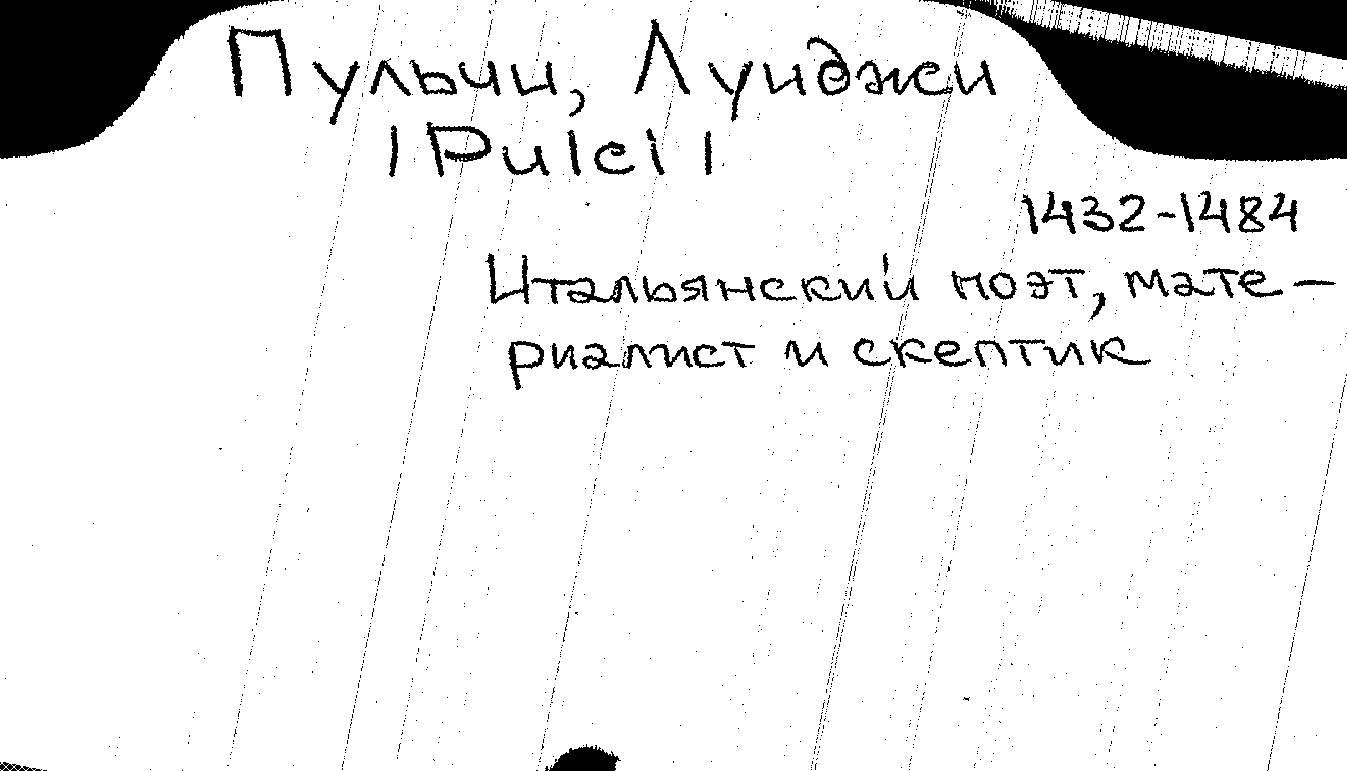 Пульчи, Луиджи
|Pulci|
1432-1484
Итальянский поэт, мате-
риалист и скептик